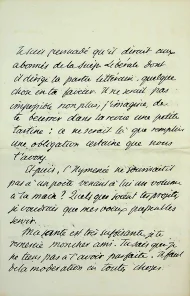 Je suis persuadé qu'il dirait aux
abonnés de la Suisse Libérale dont
il dirige la partie littéraire, quelque
chose en ta faveur. Il ne serait pas
impossible non plus, j'imagine, de
te trouver dans la revue une petite
tartine: ce ne serait là que remplir
une obligation certaine que nous
t'avons.
Et puis, l'Hymenée ne sourirait-il
pas à un poète venant à lui un volume
à la main? Quels que soient tes projets,
je voudrais que mes voeux puissent les
servir.
Ma santé est très suffisante, je te
remercie mon cher ami. Tu sais que je
ne tiens pas à l'avoir parfaite. Il faut
de la modération en toutes choses.